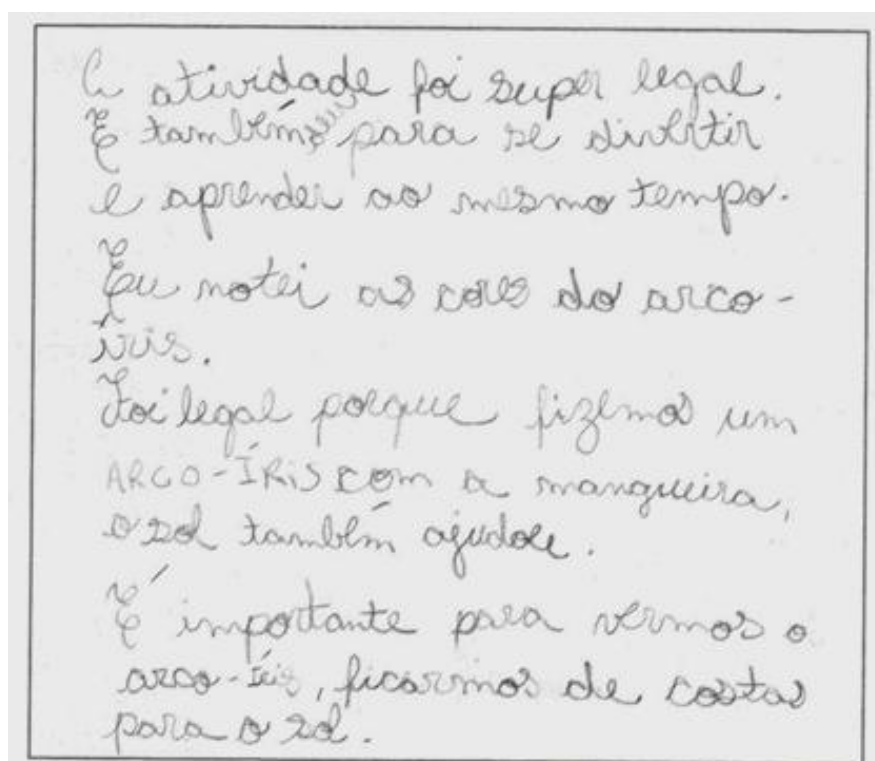 A atividade foi super legal.
E também serviu para se divertir
e aprender ao mesmo tempo.
Eu notei as cores do arco-
íris.
Foi legal porque fizemos um
ARCO-ÍRIS com a mangueira,
o sol também ajudou.
É importante para vermos o
arco-íris, ficarmos de costas
para o sol.